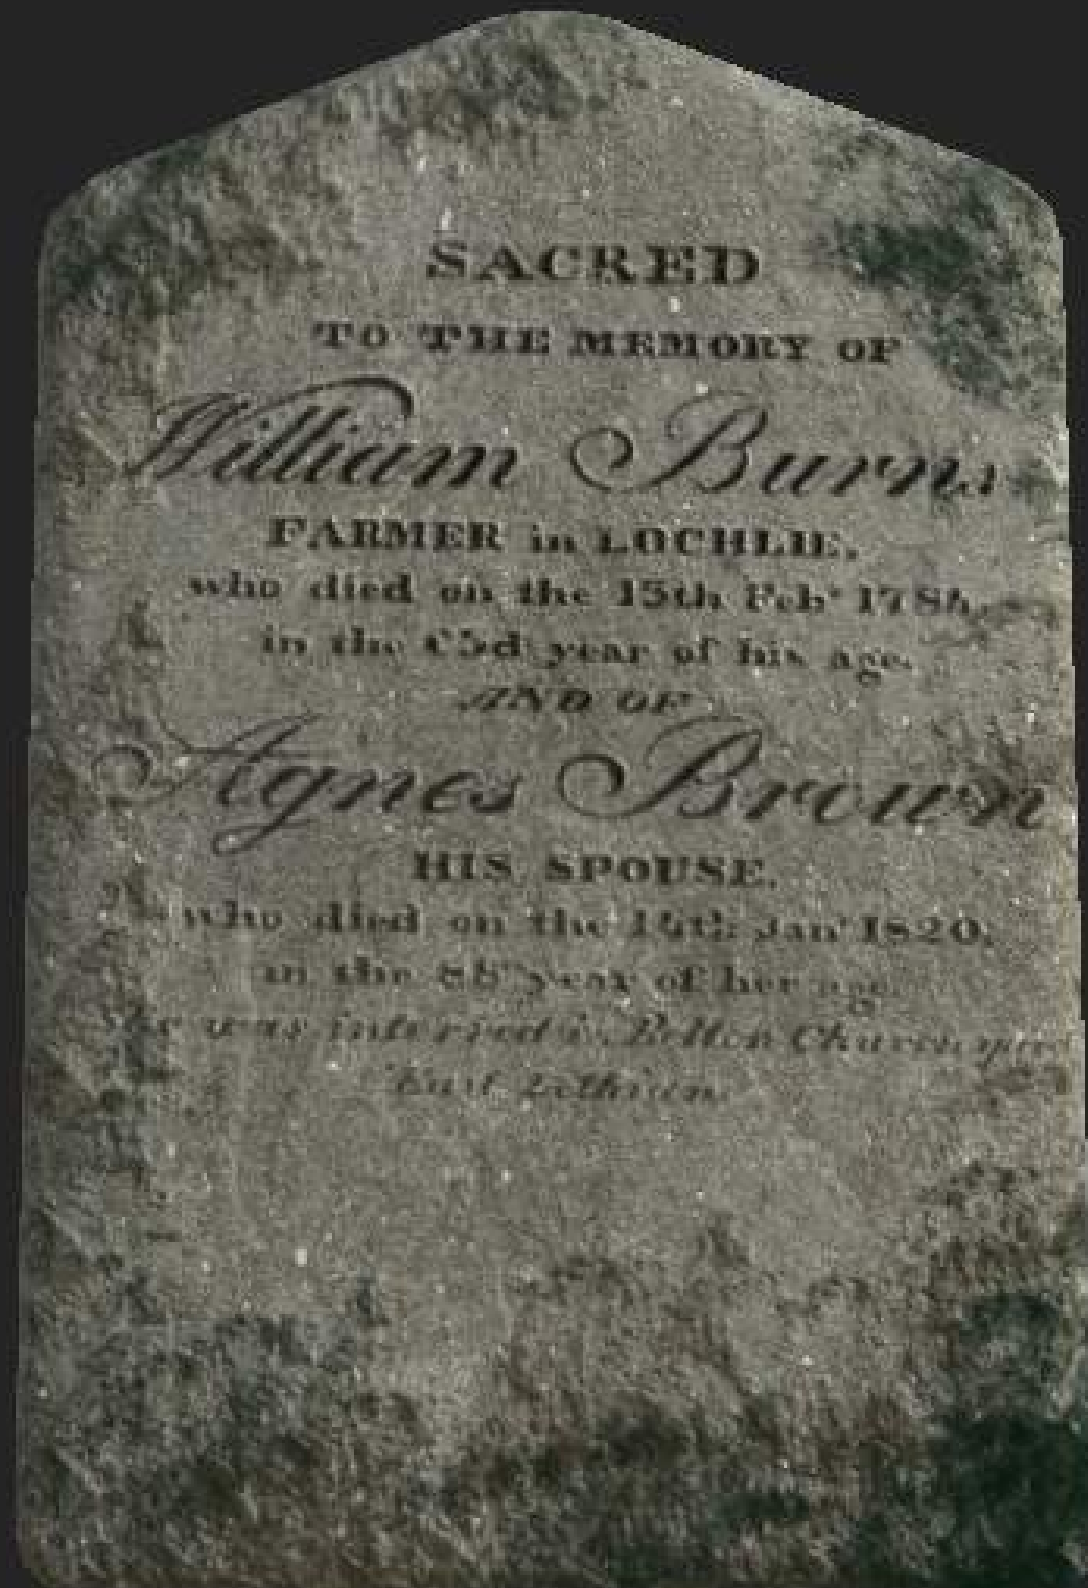 SACRED
TO THE MEMORY OF
William Burns
FARMER in LOCHLIE,
who died on the 15th Feby 1784,
in the 63d year of his age.
AND OF
Agnes Brown
HIS SPOUSE,
who died on the 14th Jany 1820,
in the 88th year of her age.
She was interred in Bolton Churchyard
East Lothian.